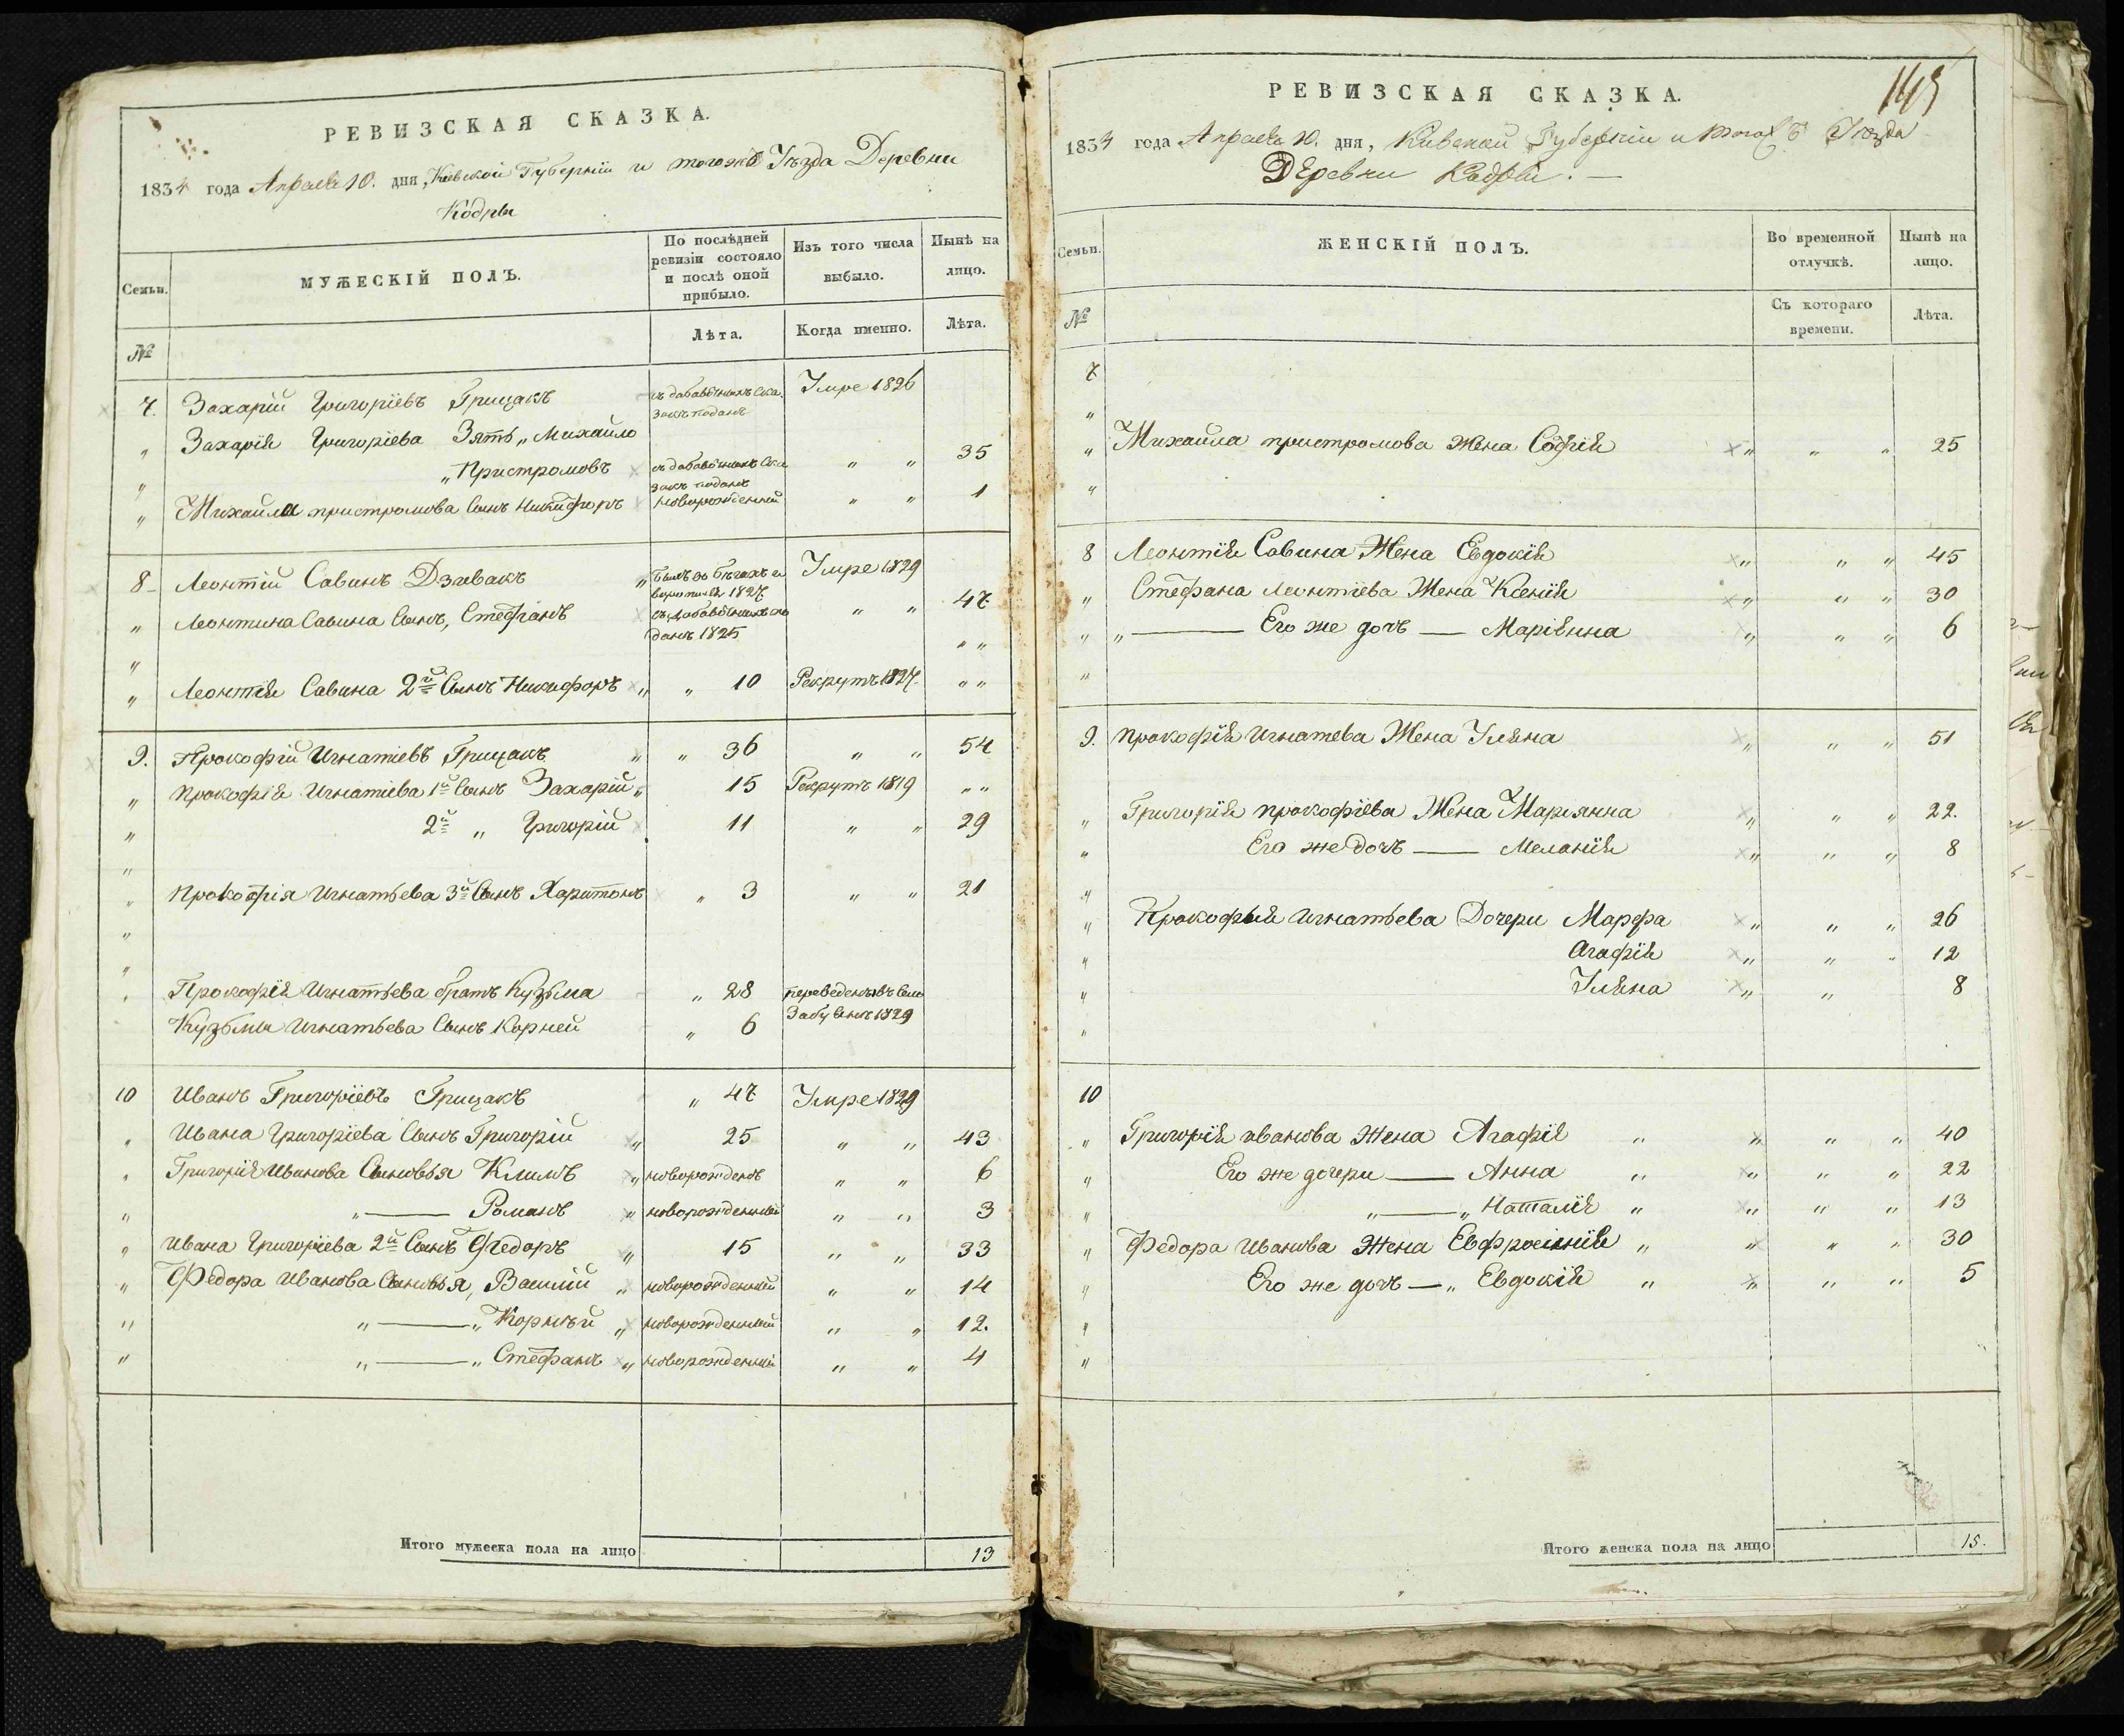 РЕВИЗСКАЯ СКАЗКА.
1834 года Апреля 10. дня, Киевской Губернии и тогожъ Уѣзда Деревни
Кодры
Семьи.
МУЖЕСКІЙ ПОЛЪ.
По послѣдней ревизіи состояло и послѣ оной прибыло.
Изъ того числа выбыло.
Нынѣ на лицо.
№
Лѣта.
Когда именно.
Лѣта.
7. Захарій Григоріевъ Грицакъ Умре 1826
„ Захарія Григоріева Зять „ Михайло
„ „ Пристромовъ „ „ 35
„ Михайла пристромова Сынъ Никифоръ новорожденный „ „ 1
8 Леонтій Савинъ Дзивакъ „ Былъ въ бегахъ и Умре 1829
1827
„ Леонтина Савина Сынъ, Стефанъ „ „ 47
1825 „ „
„
„ Леонтія Савина 2й Сынъ Никифоръ „ „ 10 Рекрутъ 1827 „ „
9. Прокофій Игнатіевъ Грицакъ „ „ 36 „ „ 54
„ Прокофія Игнатіева 1й Сынъ Захарій „ 15 Рекрутъ 1819 „ „
„ 2й „ Григорій 11 „ „ 29
„
„ Прокофія Игнатьева 3й Сынъ Харитонъ „ 3 „ „ 21
„
„
„ Прокофія Игнатьева братъ Кузьма „ 28 переведенъ въ Село
Кузьмы Игнатьева Сынъ Корней „ 6 1829
10 Иванъ Григоріевъ Грицакъ „ 47 Умре 1829
„ Ивана Григоріева Сынъ Григорій „ 25 „ „ 43
„ Григорія Иванова Сыновья Климъ „ новорожденъ „ „ 6
„ „ — Романъ „ новорожденный „ „ 3
„ Ивана Григоріева 2й Сынъ Федоръ „ 15 „ „ 33
„ Федора Иванова Сыновья, Василій „ новорожденный „ „ 14
„ „ — „ Корнѣй „ новорожденный „ „ 12.
„ „ — „ Стефанъ „ новорожденный „ „ 4
Итого мужеска пола на лицо 13
РЕВИЗСКАЯ СКАЗКА.
1834 года Апреля 10. дня, Киевской Губерніи и тогожъ Уѣзда
Деревни Кодры. —
Семьи.
ЖЕНСКІЙ ПОЛЪ.
Во временной отлучкѣ.
Нынѣ на лицо.
№
Съ котораго времени.
Лѣта.
7
„
„ Михайла пристромова Жена Софія „ „ „ 25
„
8 Леонтія Савина Жена Евдокія „ „ „ 45
„ Стефана Леонтіева Жена Ксенія „ „ „ 30
„ „ — Его же дочь — Маріянна „ „ „ 6
„
9. Прокофія Игнатева Жена Уляна „ „ „ 51
„ Григорія прокофіева Жена Марианна „ „ „ 22.
„ Его же дочь — Меланія „ „ „ 8
„
„ Прокофыя Игнатьева Дочери Марфа „ „ „ 26
„ Агафія „ „ „ 12
„ Уляна „ „ 8
„
10
„ Григорія иванова Жена Агафія „ „ „ „ 40
„ Его же дочери — Анна „ „ „ „ 22
„ „ — „ Наталія „ „ „ „ 13
„ Федора Иванова Жена Евфросинія „ „ „ „ 30
„ Его же дочь — „ Евдокія „ „ „ „ 5
„
„
Итого женска пола на лицо 15.